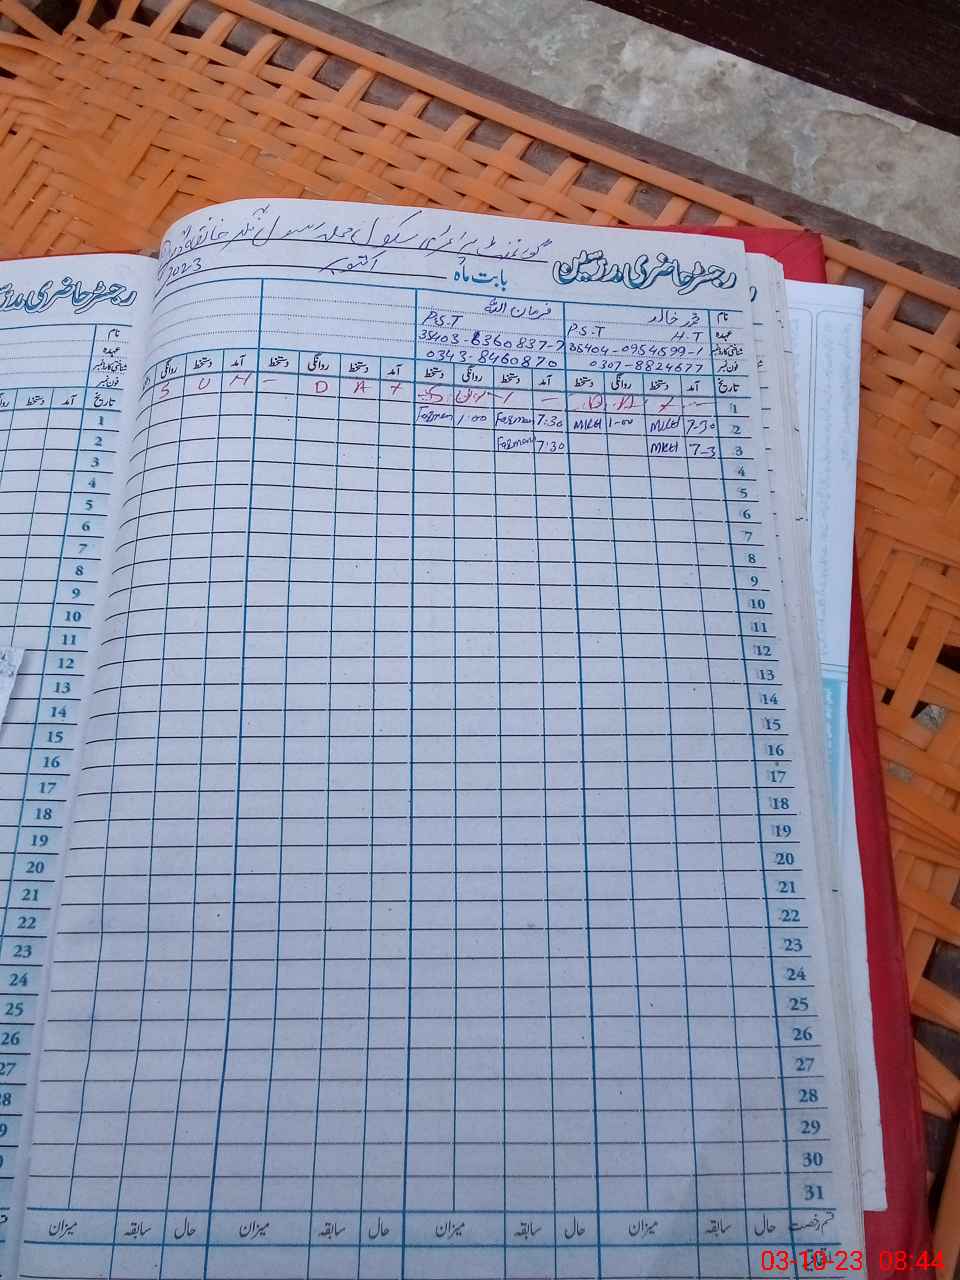 رجسٹر حاضری مدرسین
گورنمنٹ پرائمری سکول محلہ رسول نگر خانقاہ
بابت ماہ اکتوبر 2023
نام محمد خالد فرمان اللہ
عہدہ H.T P.S.T P.S.T
شناختی کارڈ نمبر 35404-0954599-1 35403-6360837-7
فون نمبر 0307-8824677 0343-8460870
تاریخ آمد دستخط روانگی دستخط آمد دستخط روانگی دستخط آمد دستخط روانگی دستخط آمد دستخط روانگی
1 A D - - A D - H U S
2 7-30 MKH 1-00 MKH 7:30 Farman 1:00 Farman
3 7-3 MKH 7:30 Farman
4
5
6
7
8
9
10
11
12
13
14
15
16
17
18
19
20
21
22
23
24
25
26
27
28
29
30
31
قسم رخصت حال سابقہ میزان حال سابقہ میزان حال سابقہ میزان حال سابقہ میزان
رجسٹر حاضری
نام
عہدہ
شناختی کارڈ نمبر
فون نمبر
تاریخ آمد دستخط
1
2
3
4
5
6
7
8
9
10
11
12
13
14
15
16
17
18
19
20
21
22
23
24
25
26
27
28
03-10-23 08:44